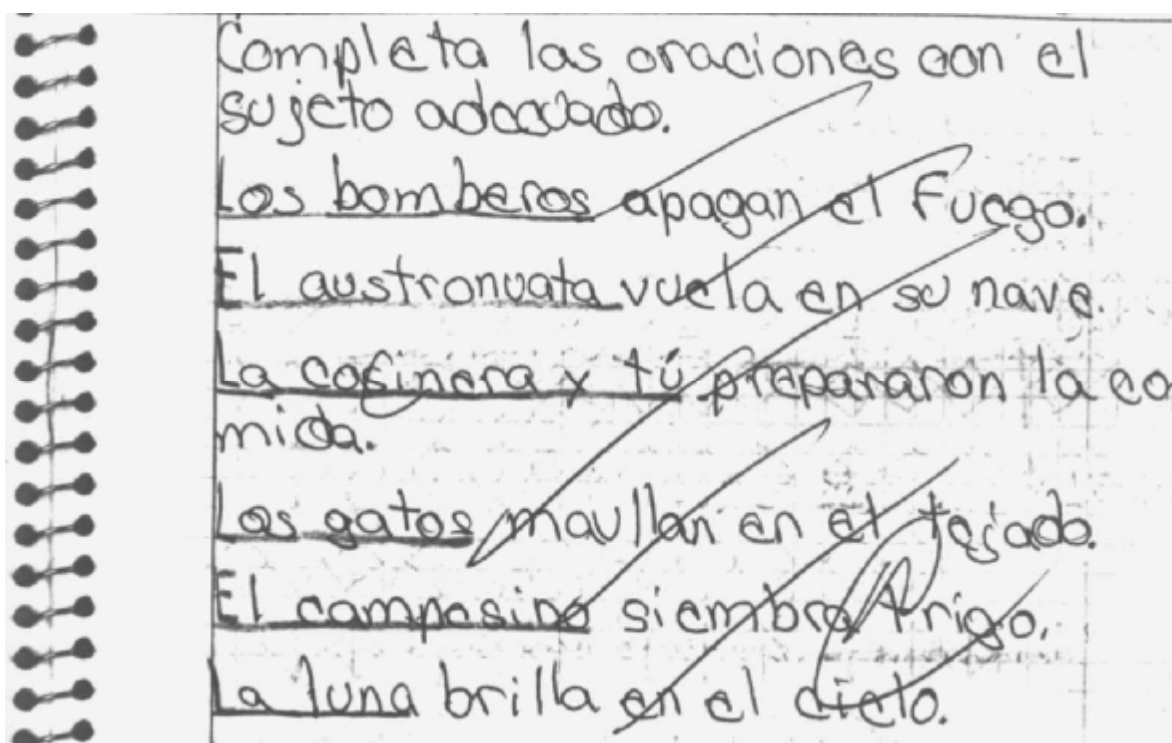 Completa las oraciones con el
sujeto adecuado.
Los bomberos apagan el fuego.
El austronuata vuela en su nave.
La cosinera y tú prepararon la co
mida.
Los gatos maullan en el tejado.
El campesino siembra trigo.
La luna brilla en el cielo.